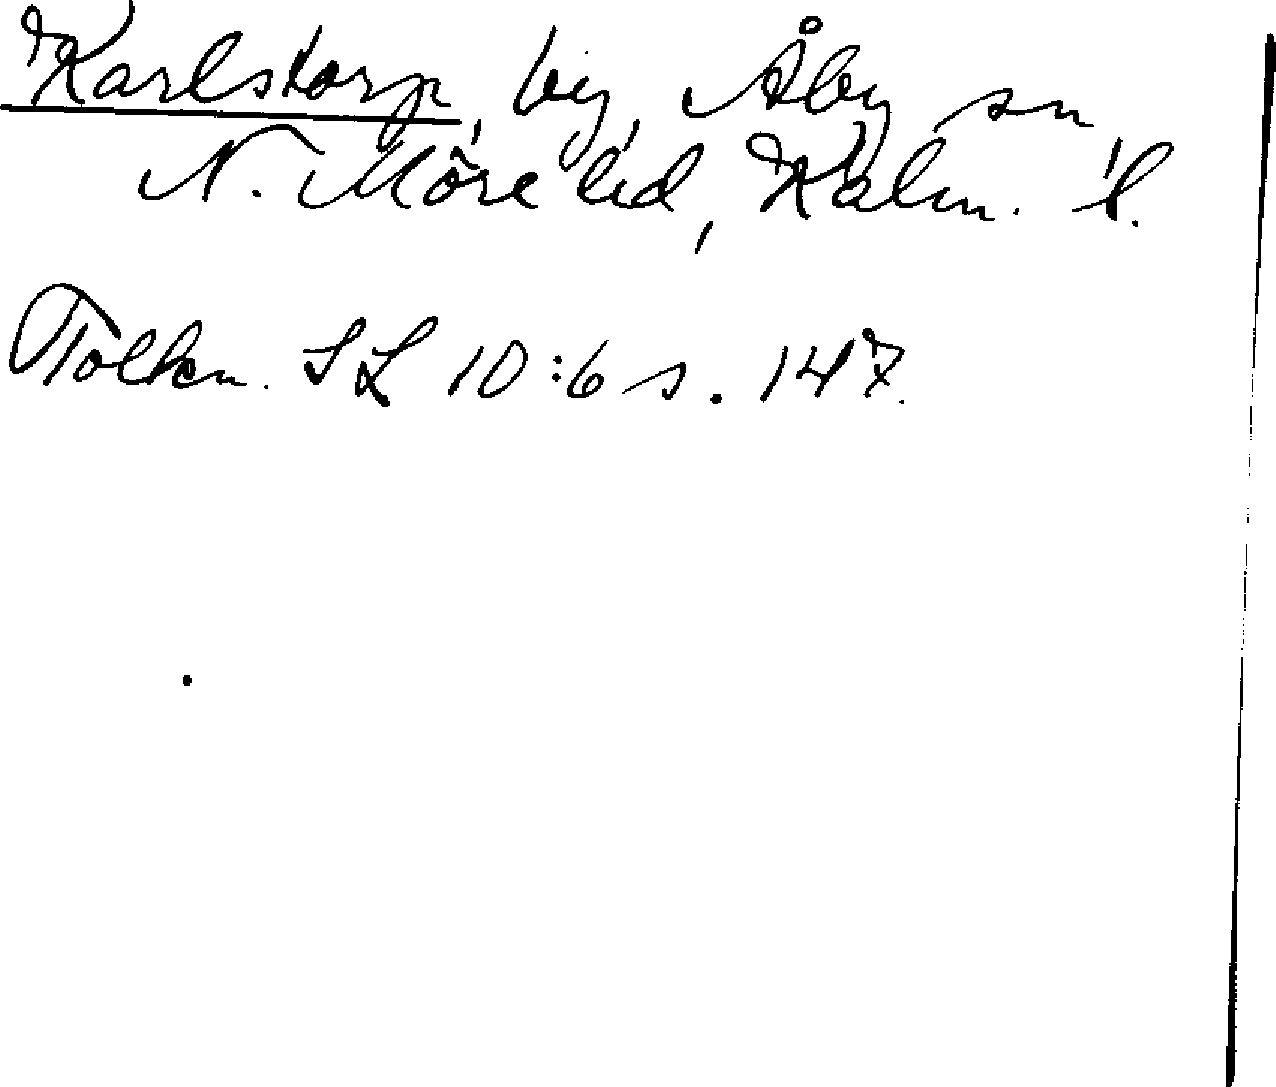 Karlstorp, by, Åby sn,
N. Möre hd, Kalm. l.
Tolkn. SL 10:6 s. 147.